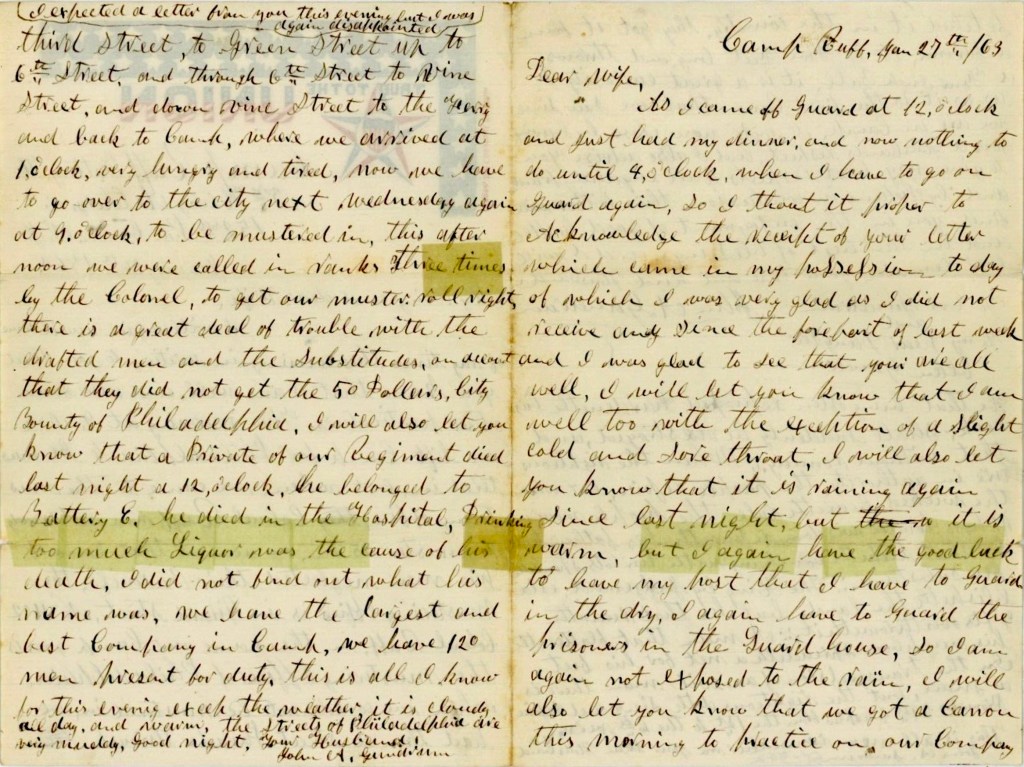 I expected a letter from you this evening but I was
again disappointed
third Street, to Green Street up to
6th Street, and through 6th Street to Vine
Street, and down Vine Street to the Ferry
and back to Camp, where we arrived at
1,o'clock, very hungry and tired, now we have
to go over to the city next Wednesday again
at 9.o'clock, to be mustered in, this after
noon we were called in ranks three times
by the Colonel, to get our muster roll right,
there is a great deal of trouble with the
drafted men and the Substitudes, on account
that they did not get the 50 Dollars, City
Bounty of Philadelphia, I will also let you
know that a Private of our Regiment died
last night a 12,o'clock, he belonged to
Battery E. he died in the Hospital, Drinking
too much Liquor was the cause of his
death, I did not find out what his
name was, we have the largest and
best Company in Camp, we have 120
men present for duty, this is all I know
for this evening exept the weather, it is cloudy
all day, and warm, the Streets of Philadelphia are
very muddy, Good night, Your Husband
John A.
Camp Ruff, Jan 27th/63
Dear Wife,
As I came off Guard at 12,o'clock
and just had my dinner, and now nothing to
do until 4,o'clock, when I have to go on
Guard again, So I thout it proper to
Acknowledge the receipt of your letter
which came in my possession to day
of which I was very glad as I did not
receive any Since the forepart of last week
and I was glad to see that your we all
well, I will let you know that I am
well too with the exeption of a Slight
cold and Sore throat, I will also let
you know that it is raining again
Since last night, but it is
warm, but I again have the good luck
to have my post that I have to Guard
in the dry, I again have to Guard the
prisoners in the Guard house, So I am
again not exposed to the rain, I will
also let you know that we got a Canon
this morning to practice on, our Company